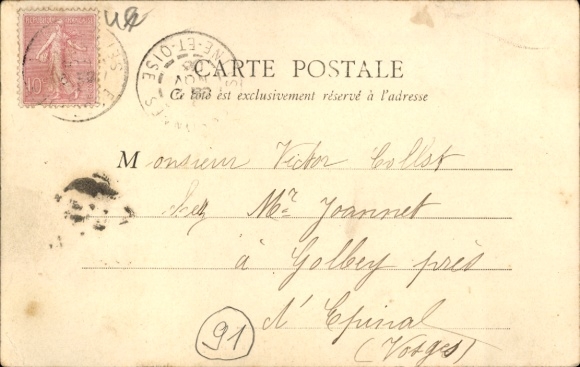 CARTE POSTALE
Ce côté est exclusivement réservé à l'adresse
10
NE-ET-OISE
AOU
Monsieur Victor Collot
chez Mr Joannet
à Golbey près
d'Epinal
(Vosges)
91